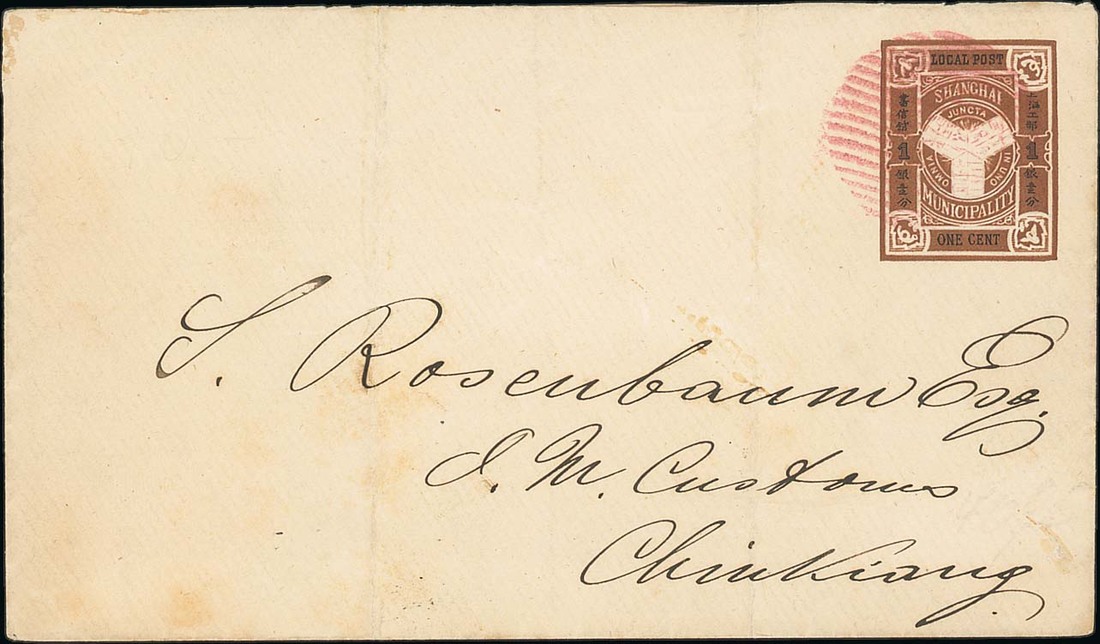 LOCAL POST
SHANGHAI
JUNCTA
OMNIA
IN UNO
書信館
1
銀壹分
上海工部
1
銀壹分
MUNICIPALITY
ONE CENT
S. Rosenbaum Esq.
I. M. Customs
Chinkiang